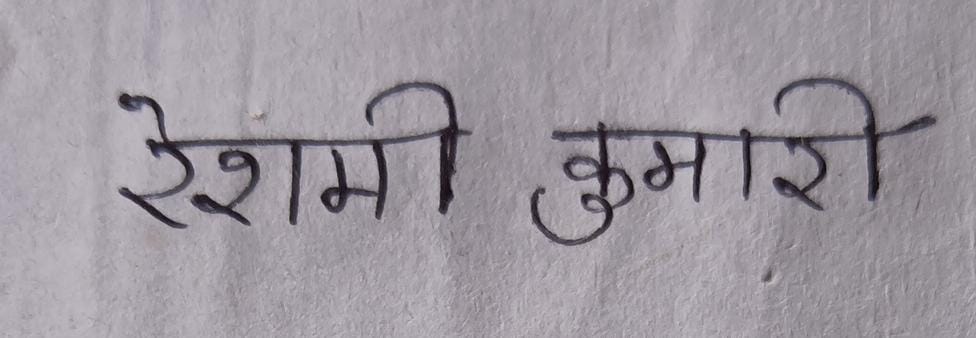 रेशमी कुमारी